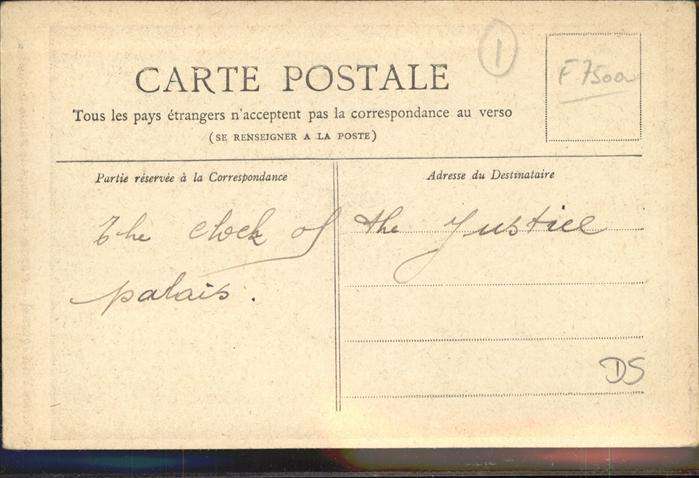 1
F 7500
CARTE POSTALE
Tous les pays étrangers n'acceptent pas la correspondance au verso
(SE RENSEIGNER A LA POSTE)
Partie réservée à la Correspondance
Adresse du Destinataire
The clock of the Justice
palais.
DS